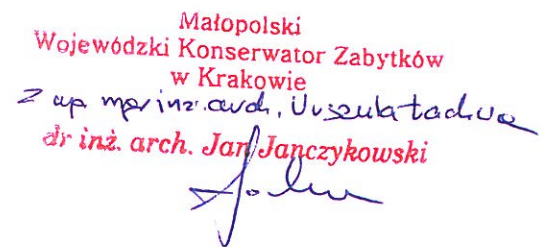 Małopolski
Wojewódzki Konserwator Zabytków
w Krakowie
z up mgr inż. arch. Urszula
dr inż. arch. Jan Janczykowski